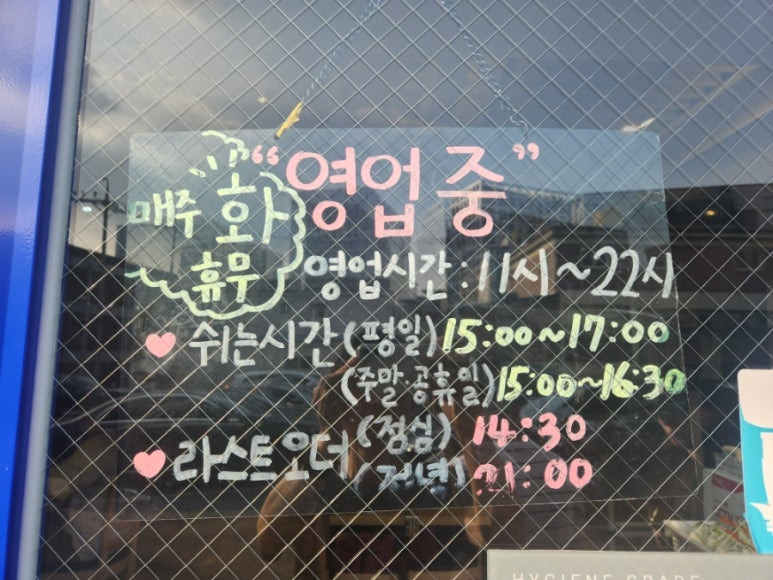 "영업중"
매주 화
휴무
영업시간 : 11시~22시
♥ 쉬는시간 (평일) 15:00~17:00
(주말·공휴일) 15:00~16:30
♥ 라스트오더 (점심) 14:30
(저녁) 21:00
HYGIENE GRADE